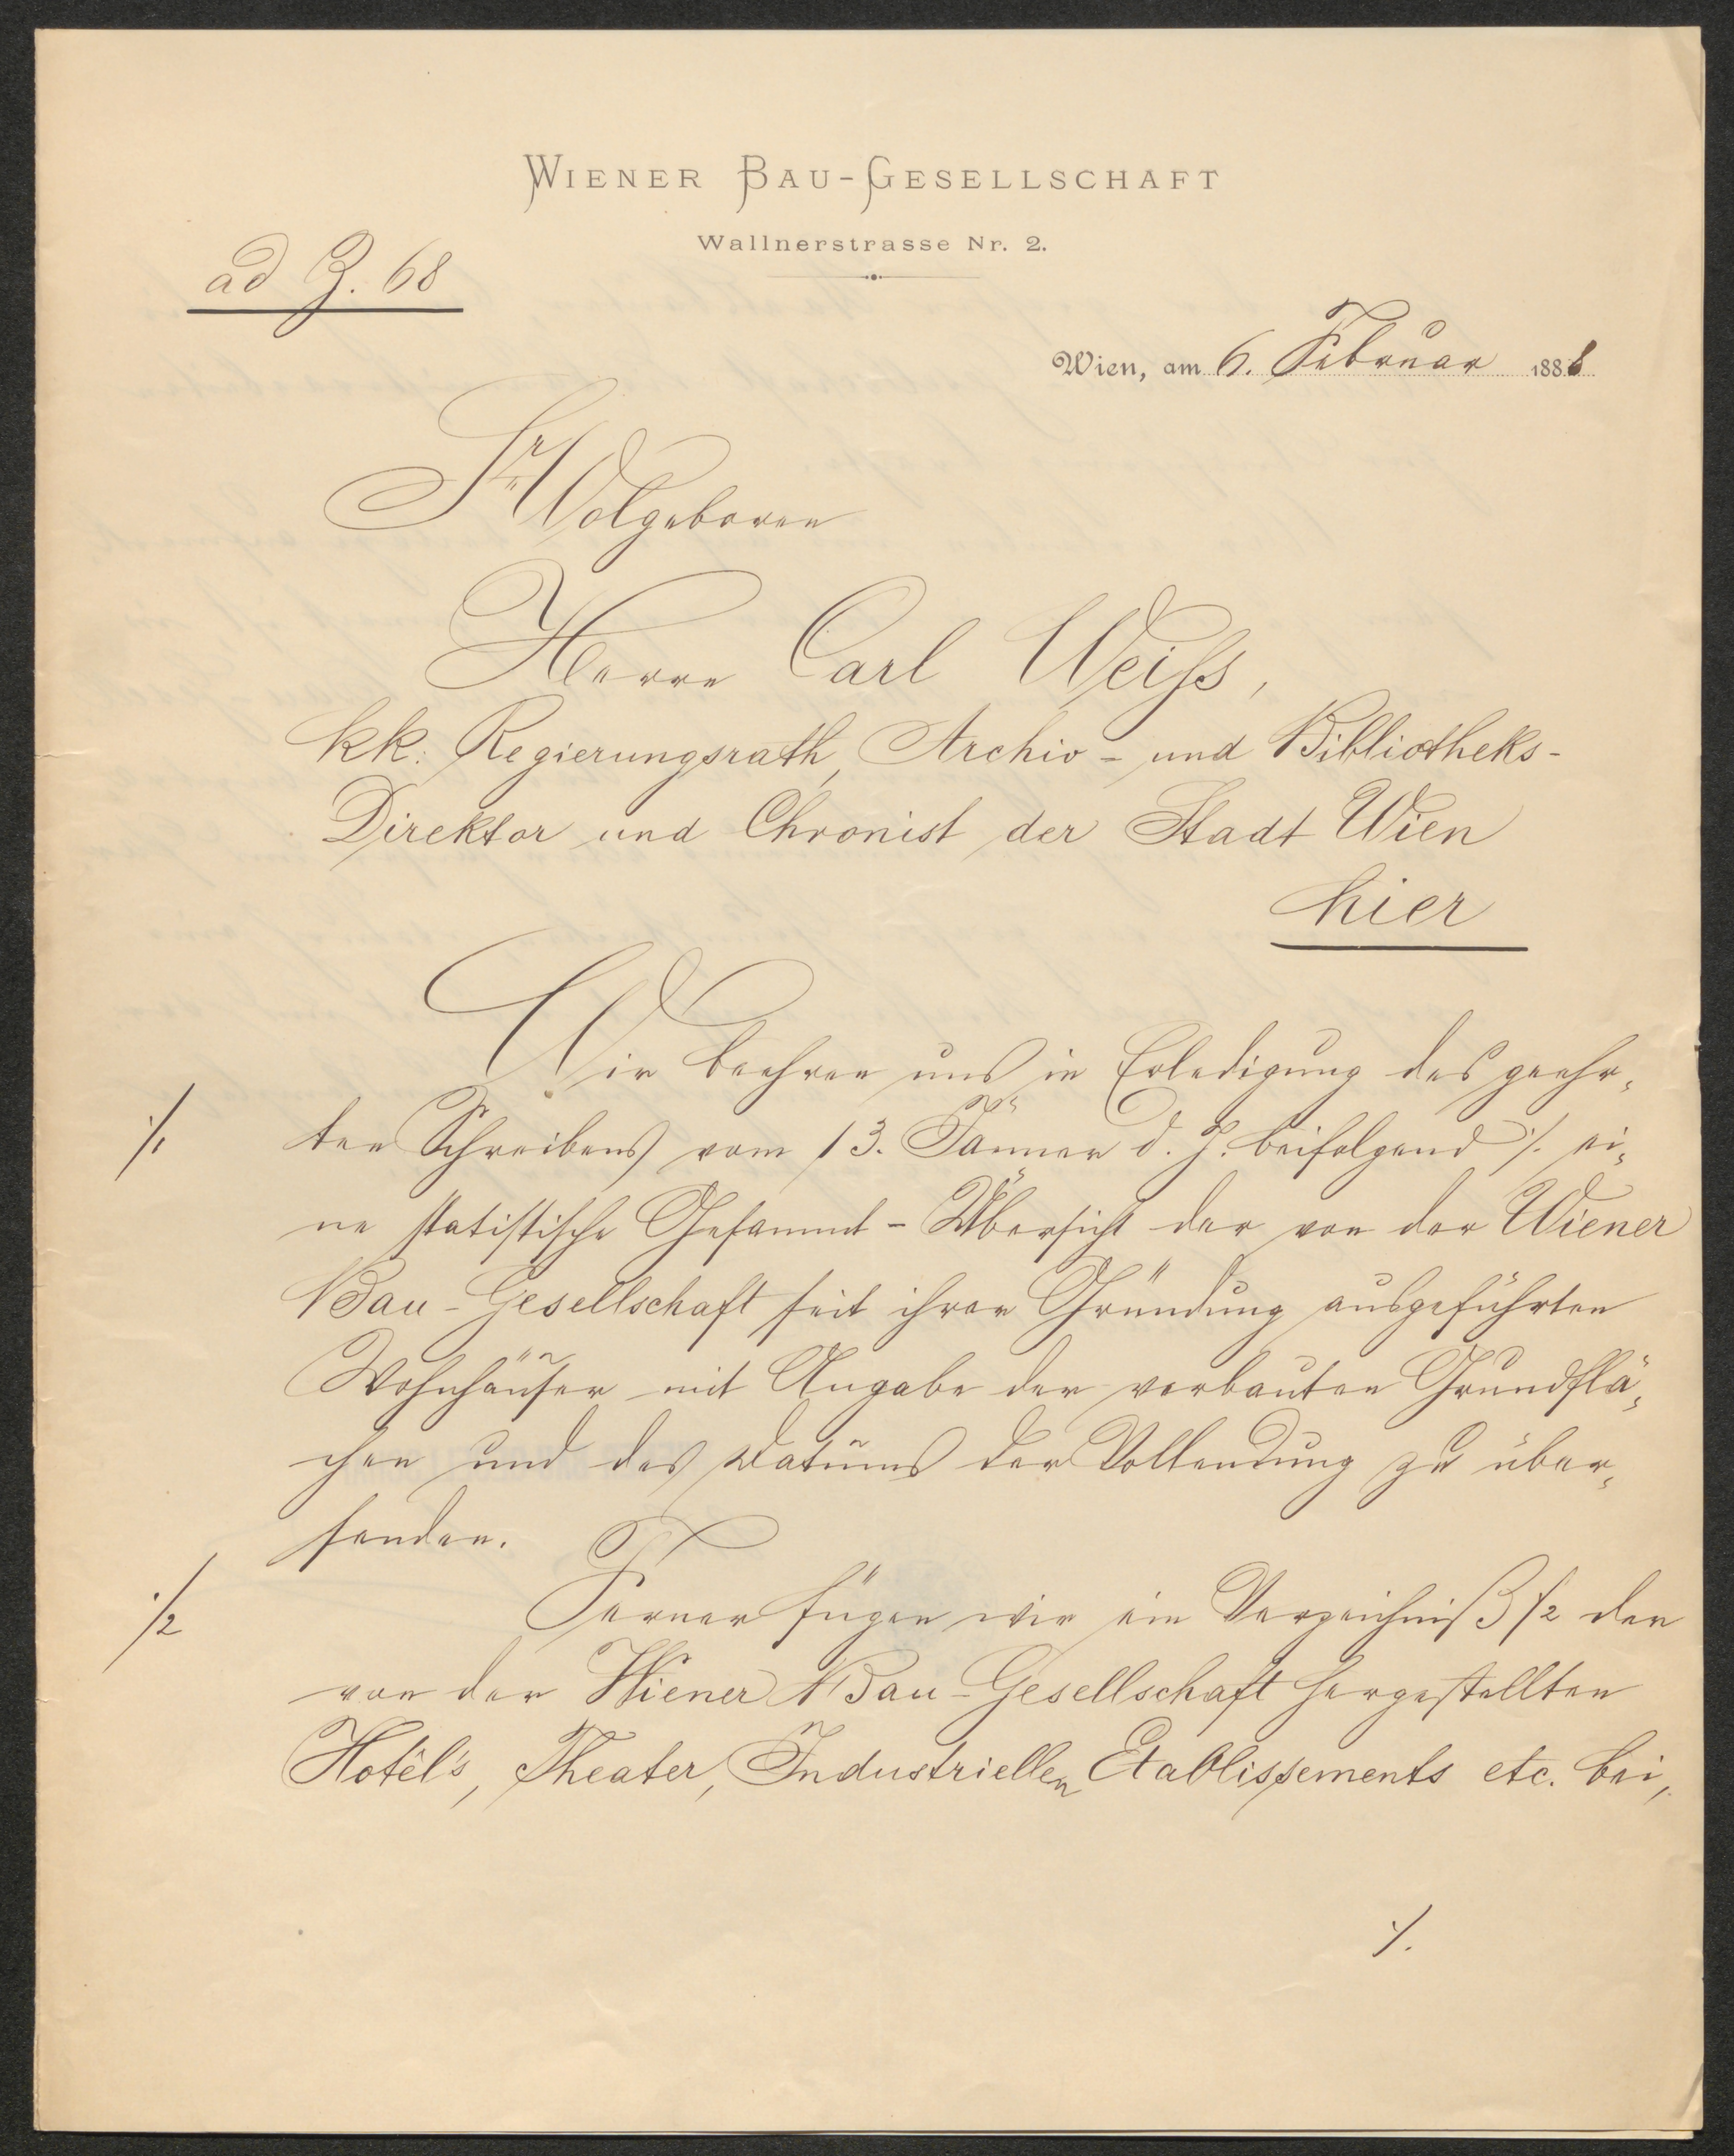 WIENER BAU-GESELLSCHAFT
Wallnerstrasse Nr. 2.
ad Z. 68
Wien, am 6. Februar 1888
Sr. Wolgeboren
Herrn Carl Weiss,
kk. Regierungsrath, Archiv- und Bibliotheks-
Direktor und Chronist der Stadt Wien
hier
Wir beehren uns in Erledigung des geehr-
./1 ten Schreibens vom 13. Jänner d. J. beifolgend ./. ei-
ne statistische Gesammt-Übersicht der von der Wiener
Bau-Gesellschaft seit ihrer Gründung ausgeführten
Wohnhäuser mit Angabe der verbauten Grundflä-
chen und des Datums der Vollendung zu über-
senden.
./2 Ferner fügen wir ein Verzeichniß ./2 der
von der Wiener Bau-Gesellschaft hergestellten
Hotêl's, Theater, Industriellen Etablissements etc. bei,
./.